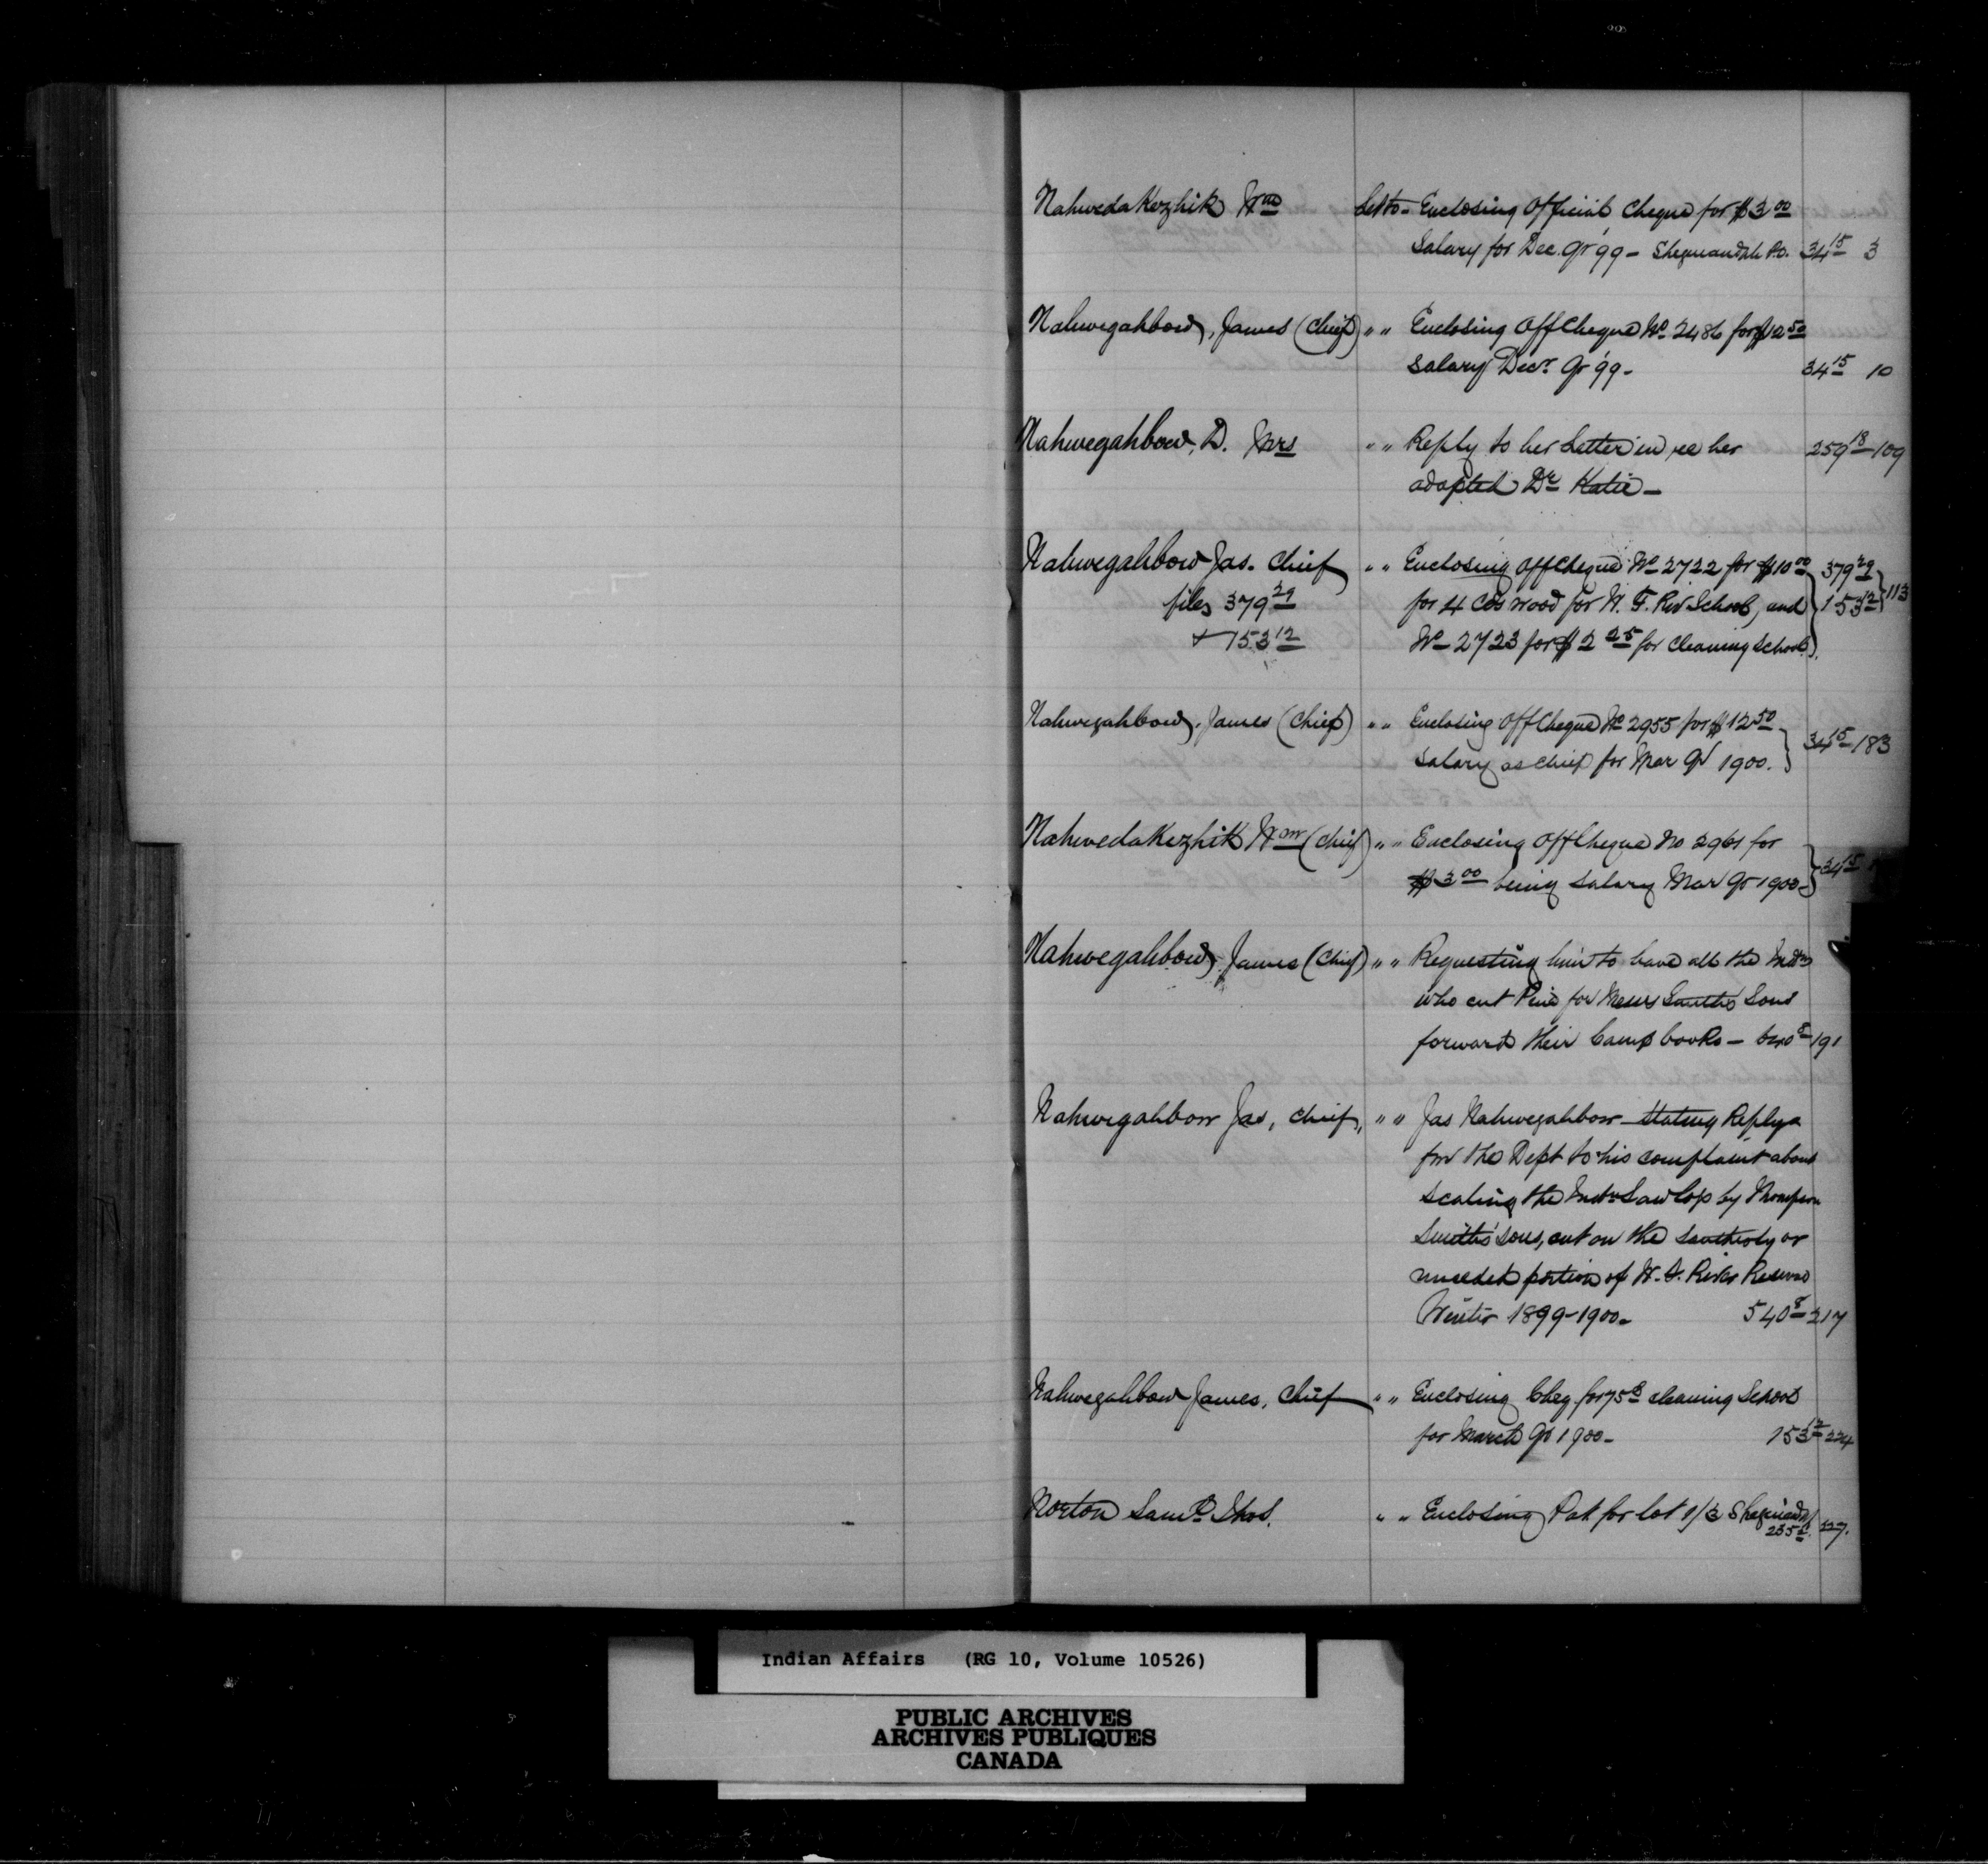 Nahwedakezhik Wm Let to - Enclosing Official Cheque for $3.00
Salary for Dec. Qr '99 - Sheguiandah P.O. 34 15 3
Nahwegahbow, James (Chief) " " Enclosing Off Cheque No 2486 for $12.50
Salary Decr Qr '99 - 34 15 10
Nahwegahbow, D. Mrs " " Reply to her Letter in re her 259 18 109
adopted Dr Katie -
Nahwegahbow Jas. Chief " " Enclosing Off Cheque No 2722 for $10.00 379 29
files 379 29 for 4 Cds wood for W. F. Riv School, and 153 12 113
+ 153 12 No 2723 for $2.25 for Cleaning School
Nahwegahbow, James (Chief) " " Enclosing Off Cheque No 2955 for $12.50
Salary as Chief for Mar Qr 1900. 34 15 183
Nahwedakezhik Wm (Chief) " " Enclosing Off Cheque No 2961 for
$3.00 being Salary Mar Qr 1900 - 34 15
Nahwegahbow, James (Chief) " " Requesting him to have all the Indns
who cut Pine for Messrs Smiths Sons
forward their Camp books - 540 8 191
Nahwegahbow Jas, Chief, " " Jas Nahwegahbow - Stating Reply
fm the Dept to his complaint about
Scaling the Indn Saw logs by Thompson
Smiths' sons, cut on the Southerly or
unceded portion of W. F. River Reserve
Winter 1899-1900 - 540 8 217
Nahwegahbow James, Chief " " Enclosing Cheq for 75c cleaning School
for March Qr 1900 - 153 12 224
Norton Saml Thos. " " Enclosing Pat for lot 1/3 Sheguiandah
235 227.
Indian Affairs (RG 10, Volume 10526)
PUBLIC ARCHIVES
ARCHIVES PUBLIQUES
CANADA